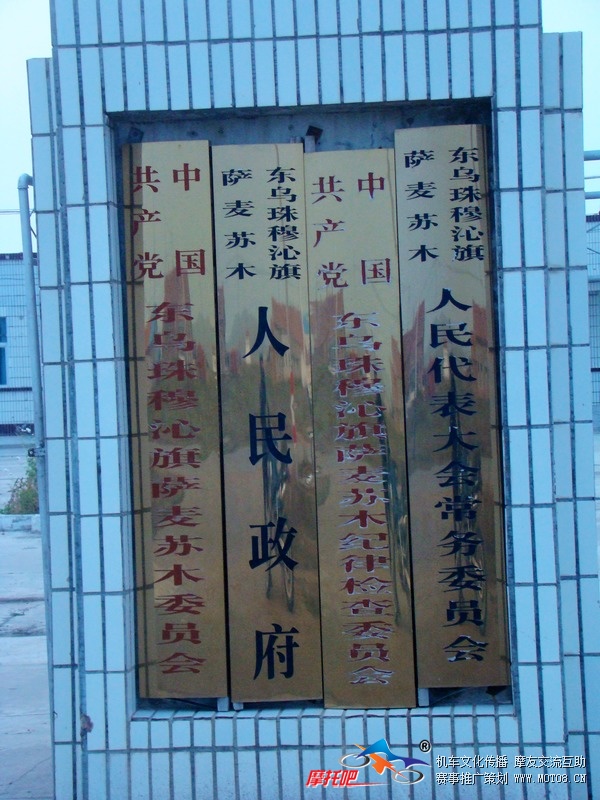 中国
共产党
东乌珠穆沁旗萨麦苏木委员会
东乌珠穆沁旗
萨麦苏木
人民政府
中国
共产党
东乌珠穆沁旗萨麦苏木纪律检查委员会
东乌珠穆沁旗
萨麦苏木
人民代表大会常务委员会
摩托吧
®
机车文化传播 摩友交流互助
赛事推广策划 www.MOTO8.CN